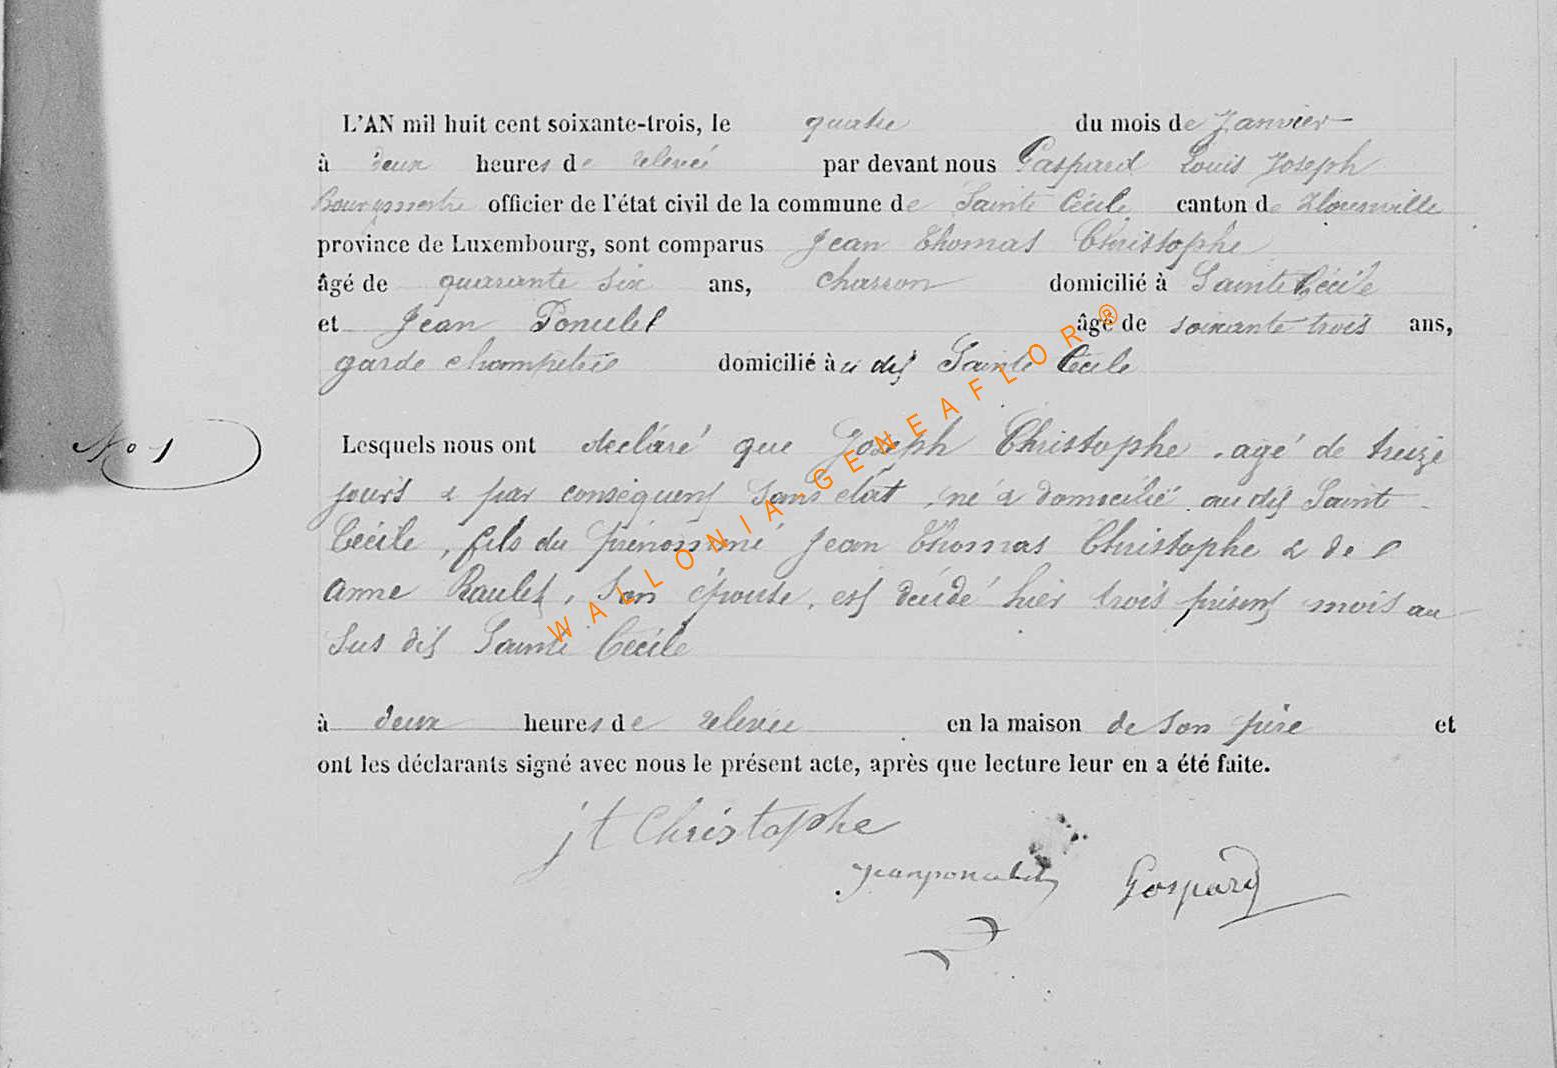 L'AN mil huit cent soixante-trois, le quatre du mois de Janvier
à deux heures de relevée par devant nous Gaspard Louis Joseph
Bourgmestre officier de l'état civil de la commune de Sainte Cécile canton de Florenville
province de Luxembourg, sont comparus Jean Thomas Christophe
âgé de quarante six ans, charron domicilié à Sainte Cécile
et Jean Poncelet âgé de soixante trois ans,
garde champetre domicilié à u dit Sainte Cécile
No 1
Lesquels nous ont declaré que Joseph Christophe, agé de treize
jours & par conséquent sans état, né & domicilié au dit Sainte
Cécile, fils du prénommé Jean Thomas Christophe & de
Anne Raulet, son épouse, est décédé hier trois présent mois au
sus dit Sainte Cécile
à deux heures de relevée en la maison de son père et
ont les déclarants signé avec nous le présent acte, après que lecture leur en a été faite.
jt Christophe
Jean poncelet
Gaspard
WALLONIA-GENEAFLOR®